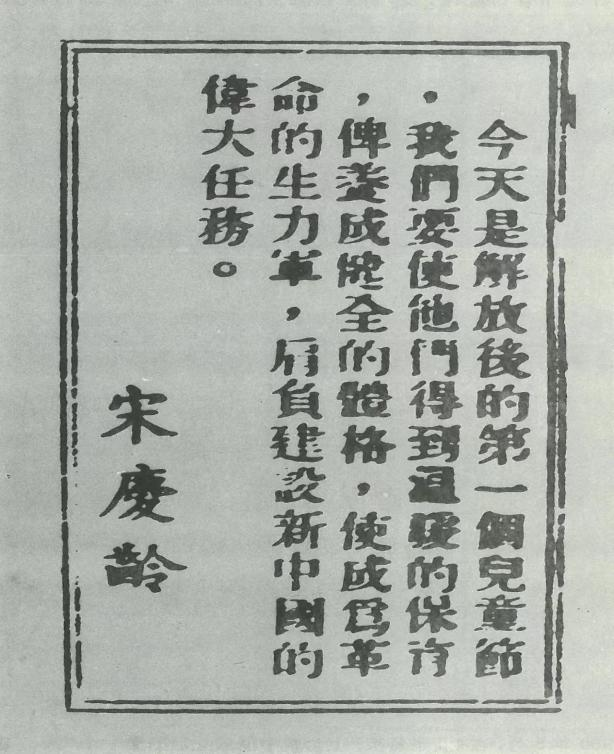 今天是解放後的第一個兒童節
，我們要使他們得到溫暖的保育
，俾養成健全的體格，使成爲革
命的生力軍，肩負建設新中國的
偉大任務。
宋慶齡